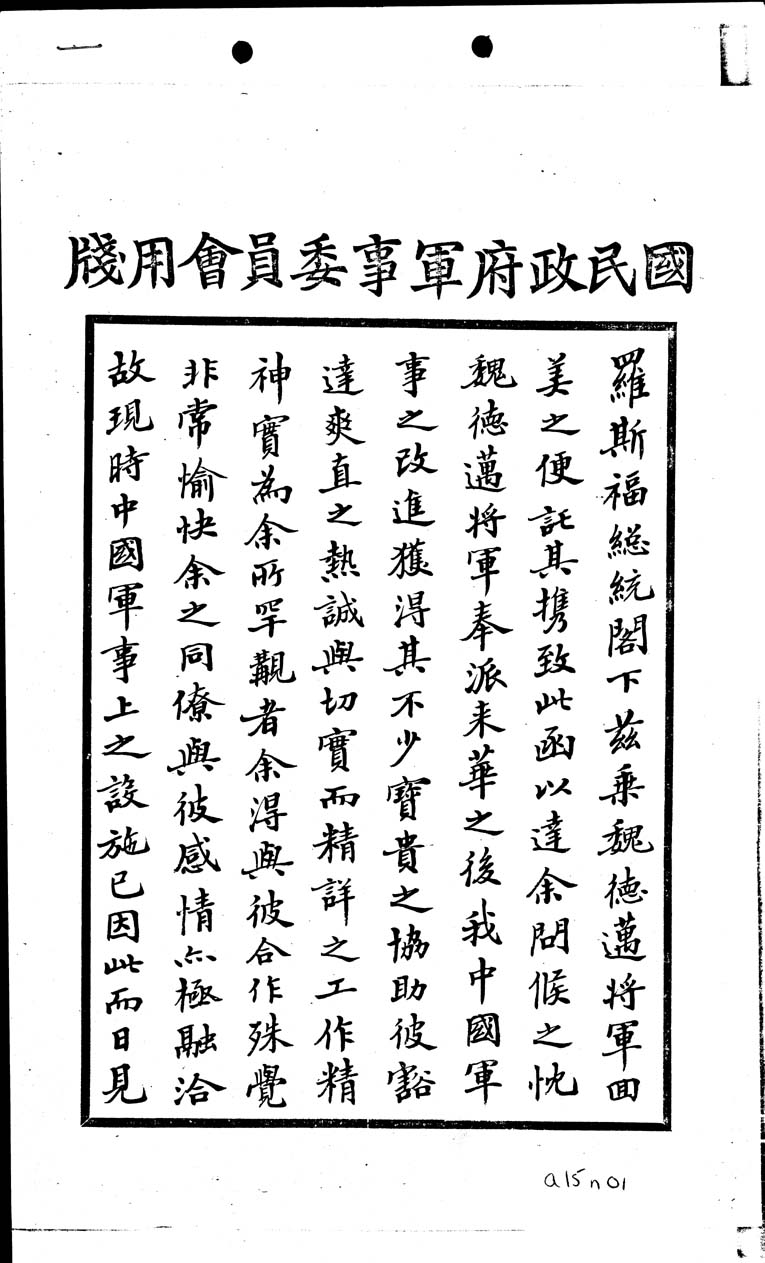 國民政府軍事委員會用牋
羅斯福總統閣下茲乘魏德邁將軍回
美之便託其携致此函以達余問候之忱
魏德邁將軍奉派来華之後我中國軍
事之改進獲得其不少寶貴之協助彼豁
達爽直之熱誠與切實而精詳之工作精
神實為余所罕覯者余得與彼合作殊覺
非常愉快余之同僚與彼感情亦極融洽
故現時中國軍事上之設施已因此而日見
a15n01